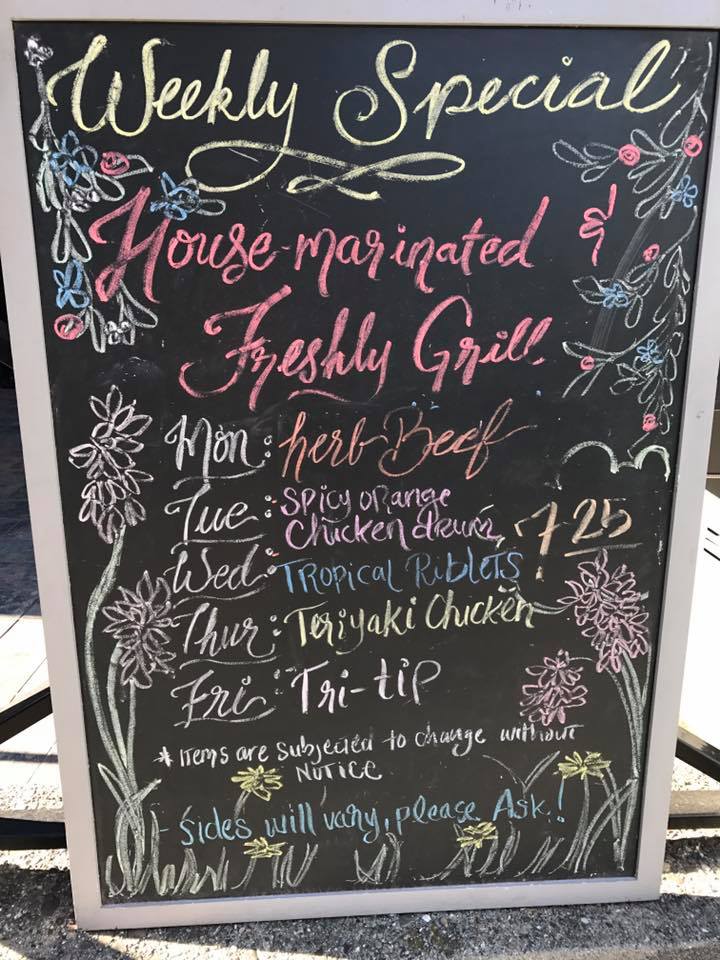 Weekly Special
House-marinated &
Freshly Grill
Mon: herb-Beef
Tue: Spicy orange
Chicken drum, 7.25
Wed: Tropical Riblets
Thur: Teriyaki Chicken
Fri: Tri-tip
* Items are subjected to change without
Notice
- sides will vary, please Ask!